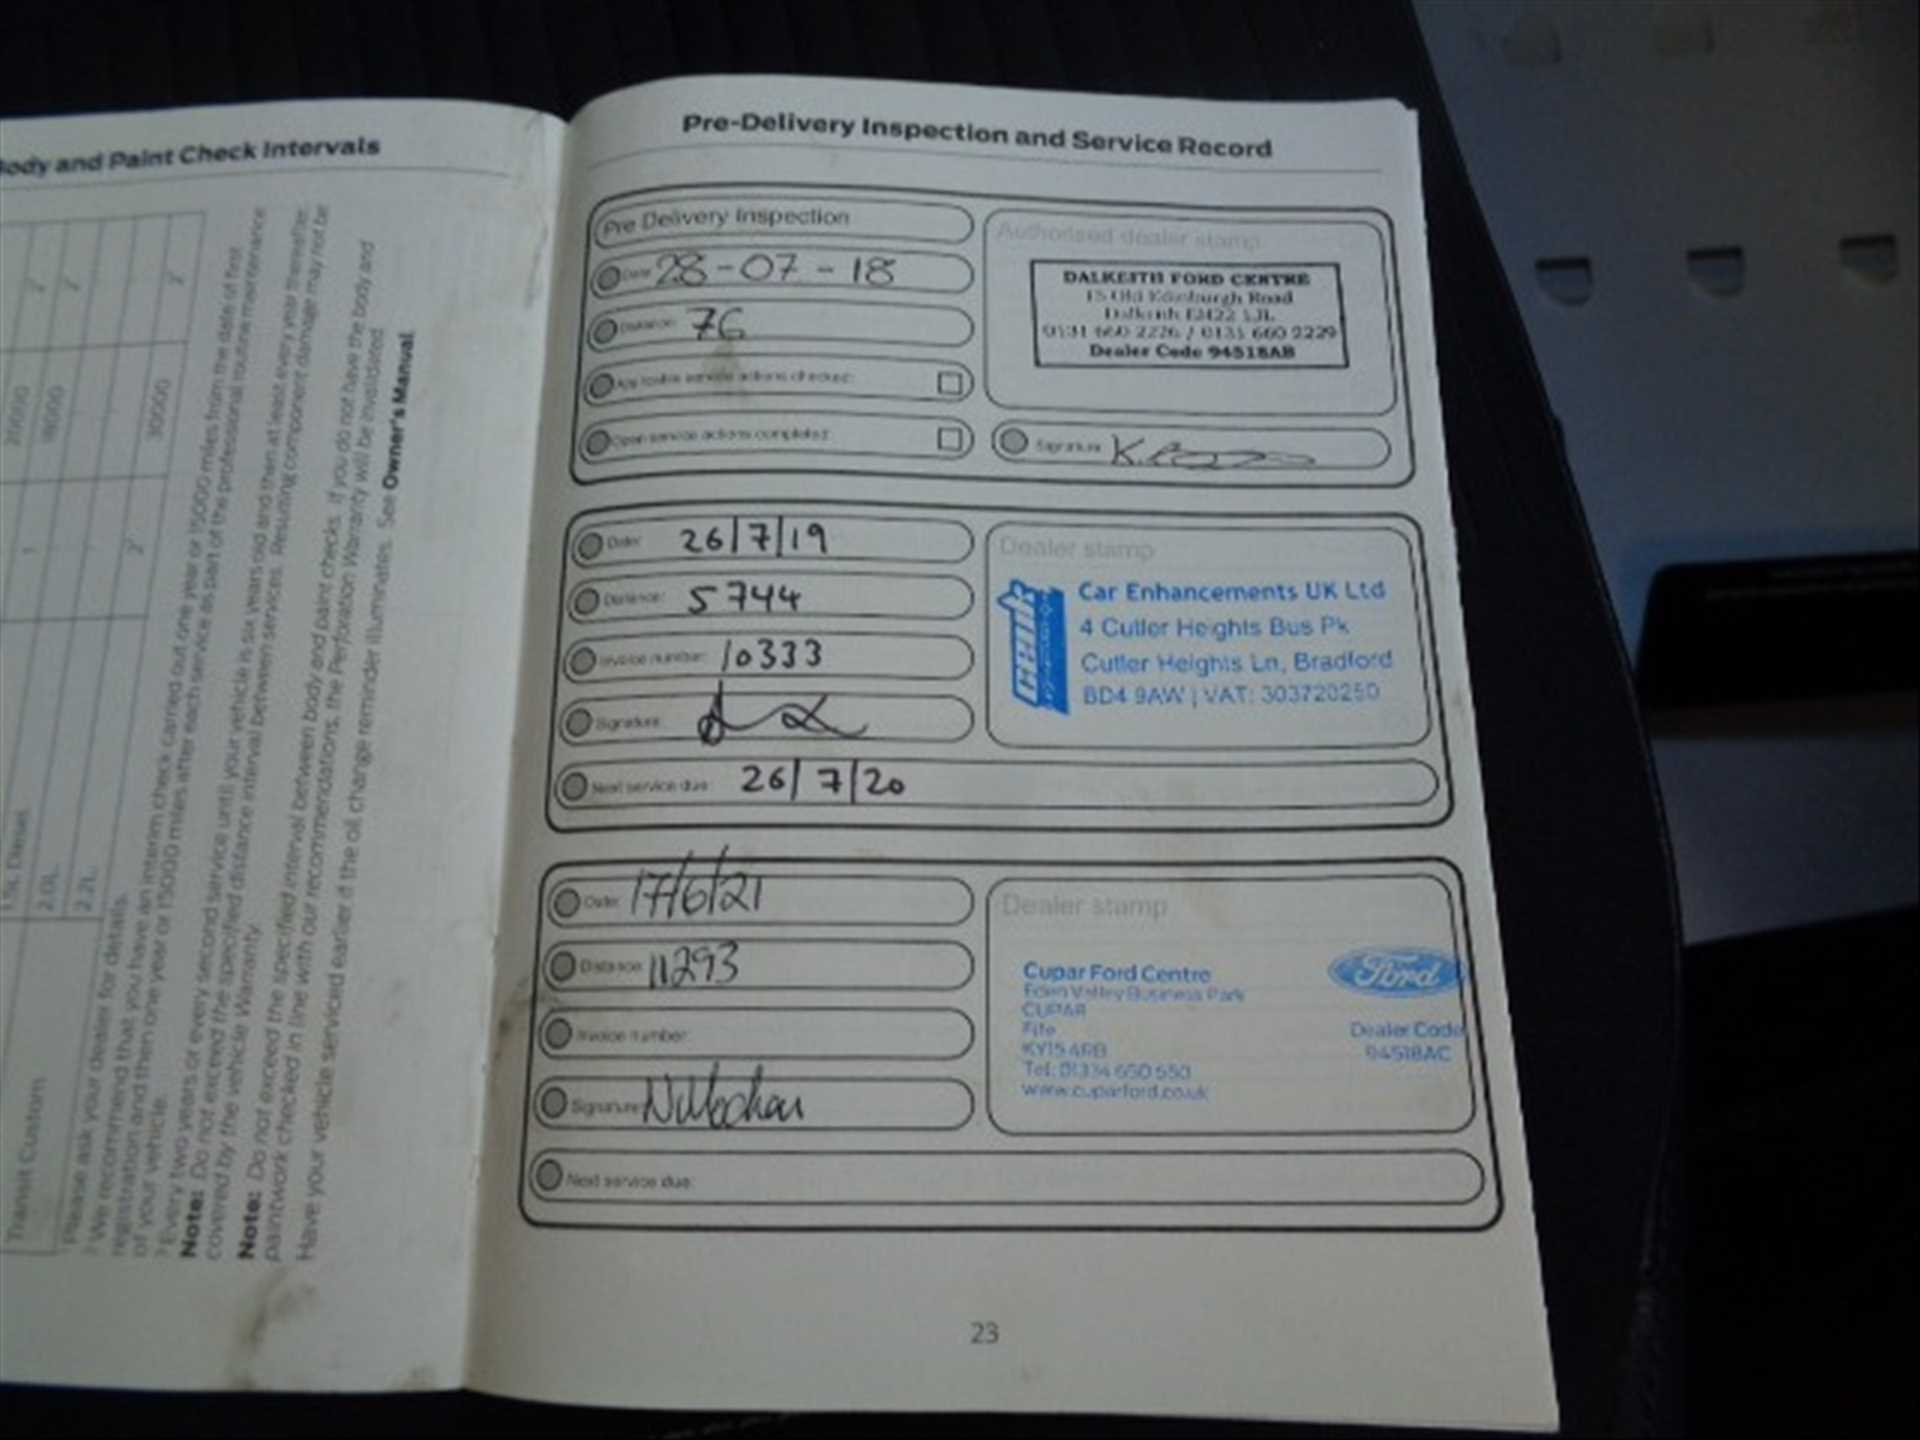 Body and Paint Check Intervals
20000
18000
30000
1.5L Diesel
2.0L
2.2L
Transit Custom
Please ask your dealer for details.
We recommend that you have an interim check carried out one year or 15000 miles from the date of first
registration and then one year or 15000 miles after each service as part of the professional routine maintenance
of your vehicle.
Every two years or every second service until your vehicle is six years old and then at least every year thereafter.
Note: Do not exceed the specified distance interval between services. Resulting component damage may not be
covered by the vehicle Warranty.
Note: Do not exceed the specified interval between body and paint checks. If you do not have the body and
paintwork checked in line with our recommendations, the Perforation Warranty will be invalidated.
Have your vehicle serviced earlier if the oil change reminder illuminates. See Owner's Manual
Pre-Delivery Inspection and Service Record
Pre Delivery Inspection
Date: 28-07-18
Distance: 76
Applicable service actions checked:
Open service actions completed:
Authorised dealer stamp
DALKEITH FORD CENTRE
15 Old Edinburgh Road
Dalkeith EH22 1JL
0131 660 2226 / 0131 660 2229
Dealer Code 94518AB
Signature:
Date: 26/7/19
Distance: 5744
Invoice number: 10333
Signature:
Next service due: 26/7/20
Dealer stamp
Car Enhancements UK Ltd
4 Cutler Heights Bus Pk
Cutler Heights Ln, Bradford
BD4 9AW | VAT: 303720250
Date: 17/6/21
Distance: 11293
Invoice number:
Signature:
Next service due:
Dealer stamp
Cupar Ford Centre
Eden Valley Business Park
CUPAR
Fife
KY15 4RB
Tel: 01334 650 550
www.cuparford.co.uk
Ford
Dealer Code
94518AC
23